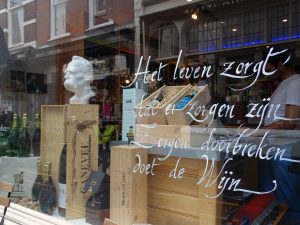 Het leven zorgt
dat er zorgen zijn
Zorgen doorbreken
doet de Wijn